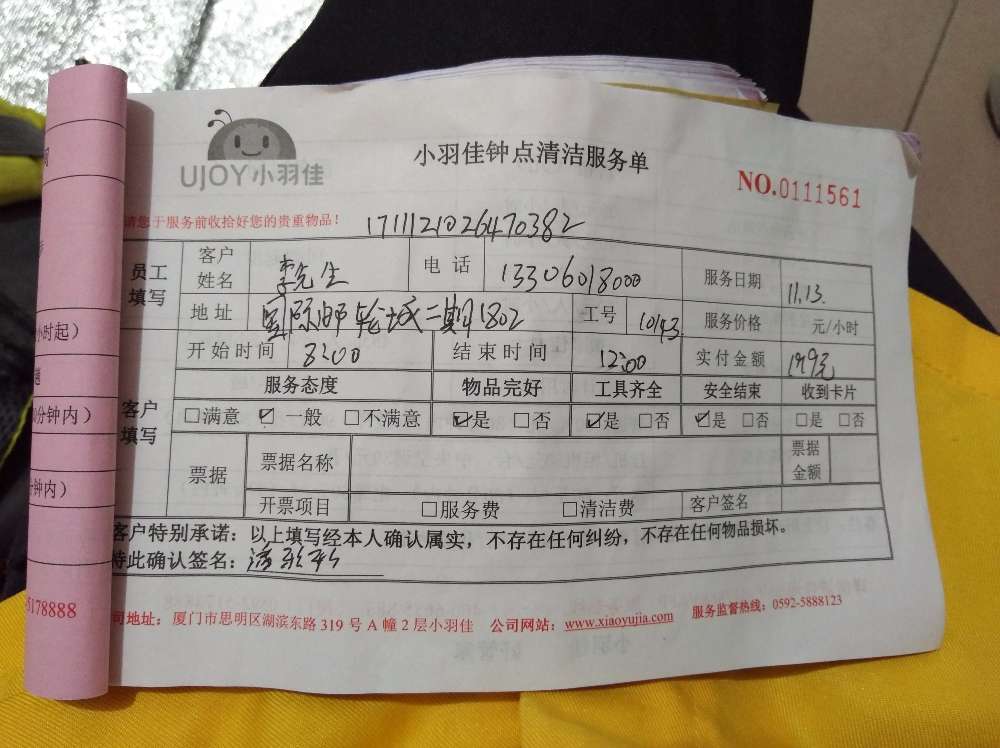 UJOY小羽佳
小羽佳钟点清洁服务单
NO.0111561
请您于服务前收拾好您的贵重物品！
1711121026470382
员工填写 客户姓名 李先生 电话 13306018000 服务日期 11.13.
地址 国际邮轮城二期1802 工号 10193 服务价格 元/小时
开始时间 8:00 结束时间 12:00 实付金额 179元
客户填写 服务态度 物品完好 工具齐全 安全结束 收到卡片
□满意 ☑一般 □不满意 ☑是 □否 ☑是 □否 ☑是 □否 □是 □否
票据 票据名称 票据金额
开票项目 □服务费 □清洁费 客户签名
客户特别承诺：以上填写经本人确认属实，不存在任何纠纷，不存在任何物品损坏。
特此确认签名：
司地址：厦门市思明区湖滨东路319号A幢2层小羽佳 公司网站：www.xiaoyujia.com 服务监督热线：0592-5888123
小时起）
分钟内）
钟内）
5178888